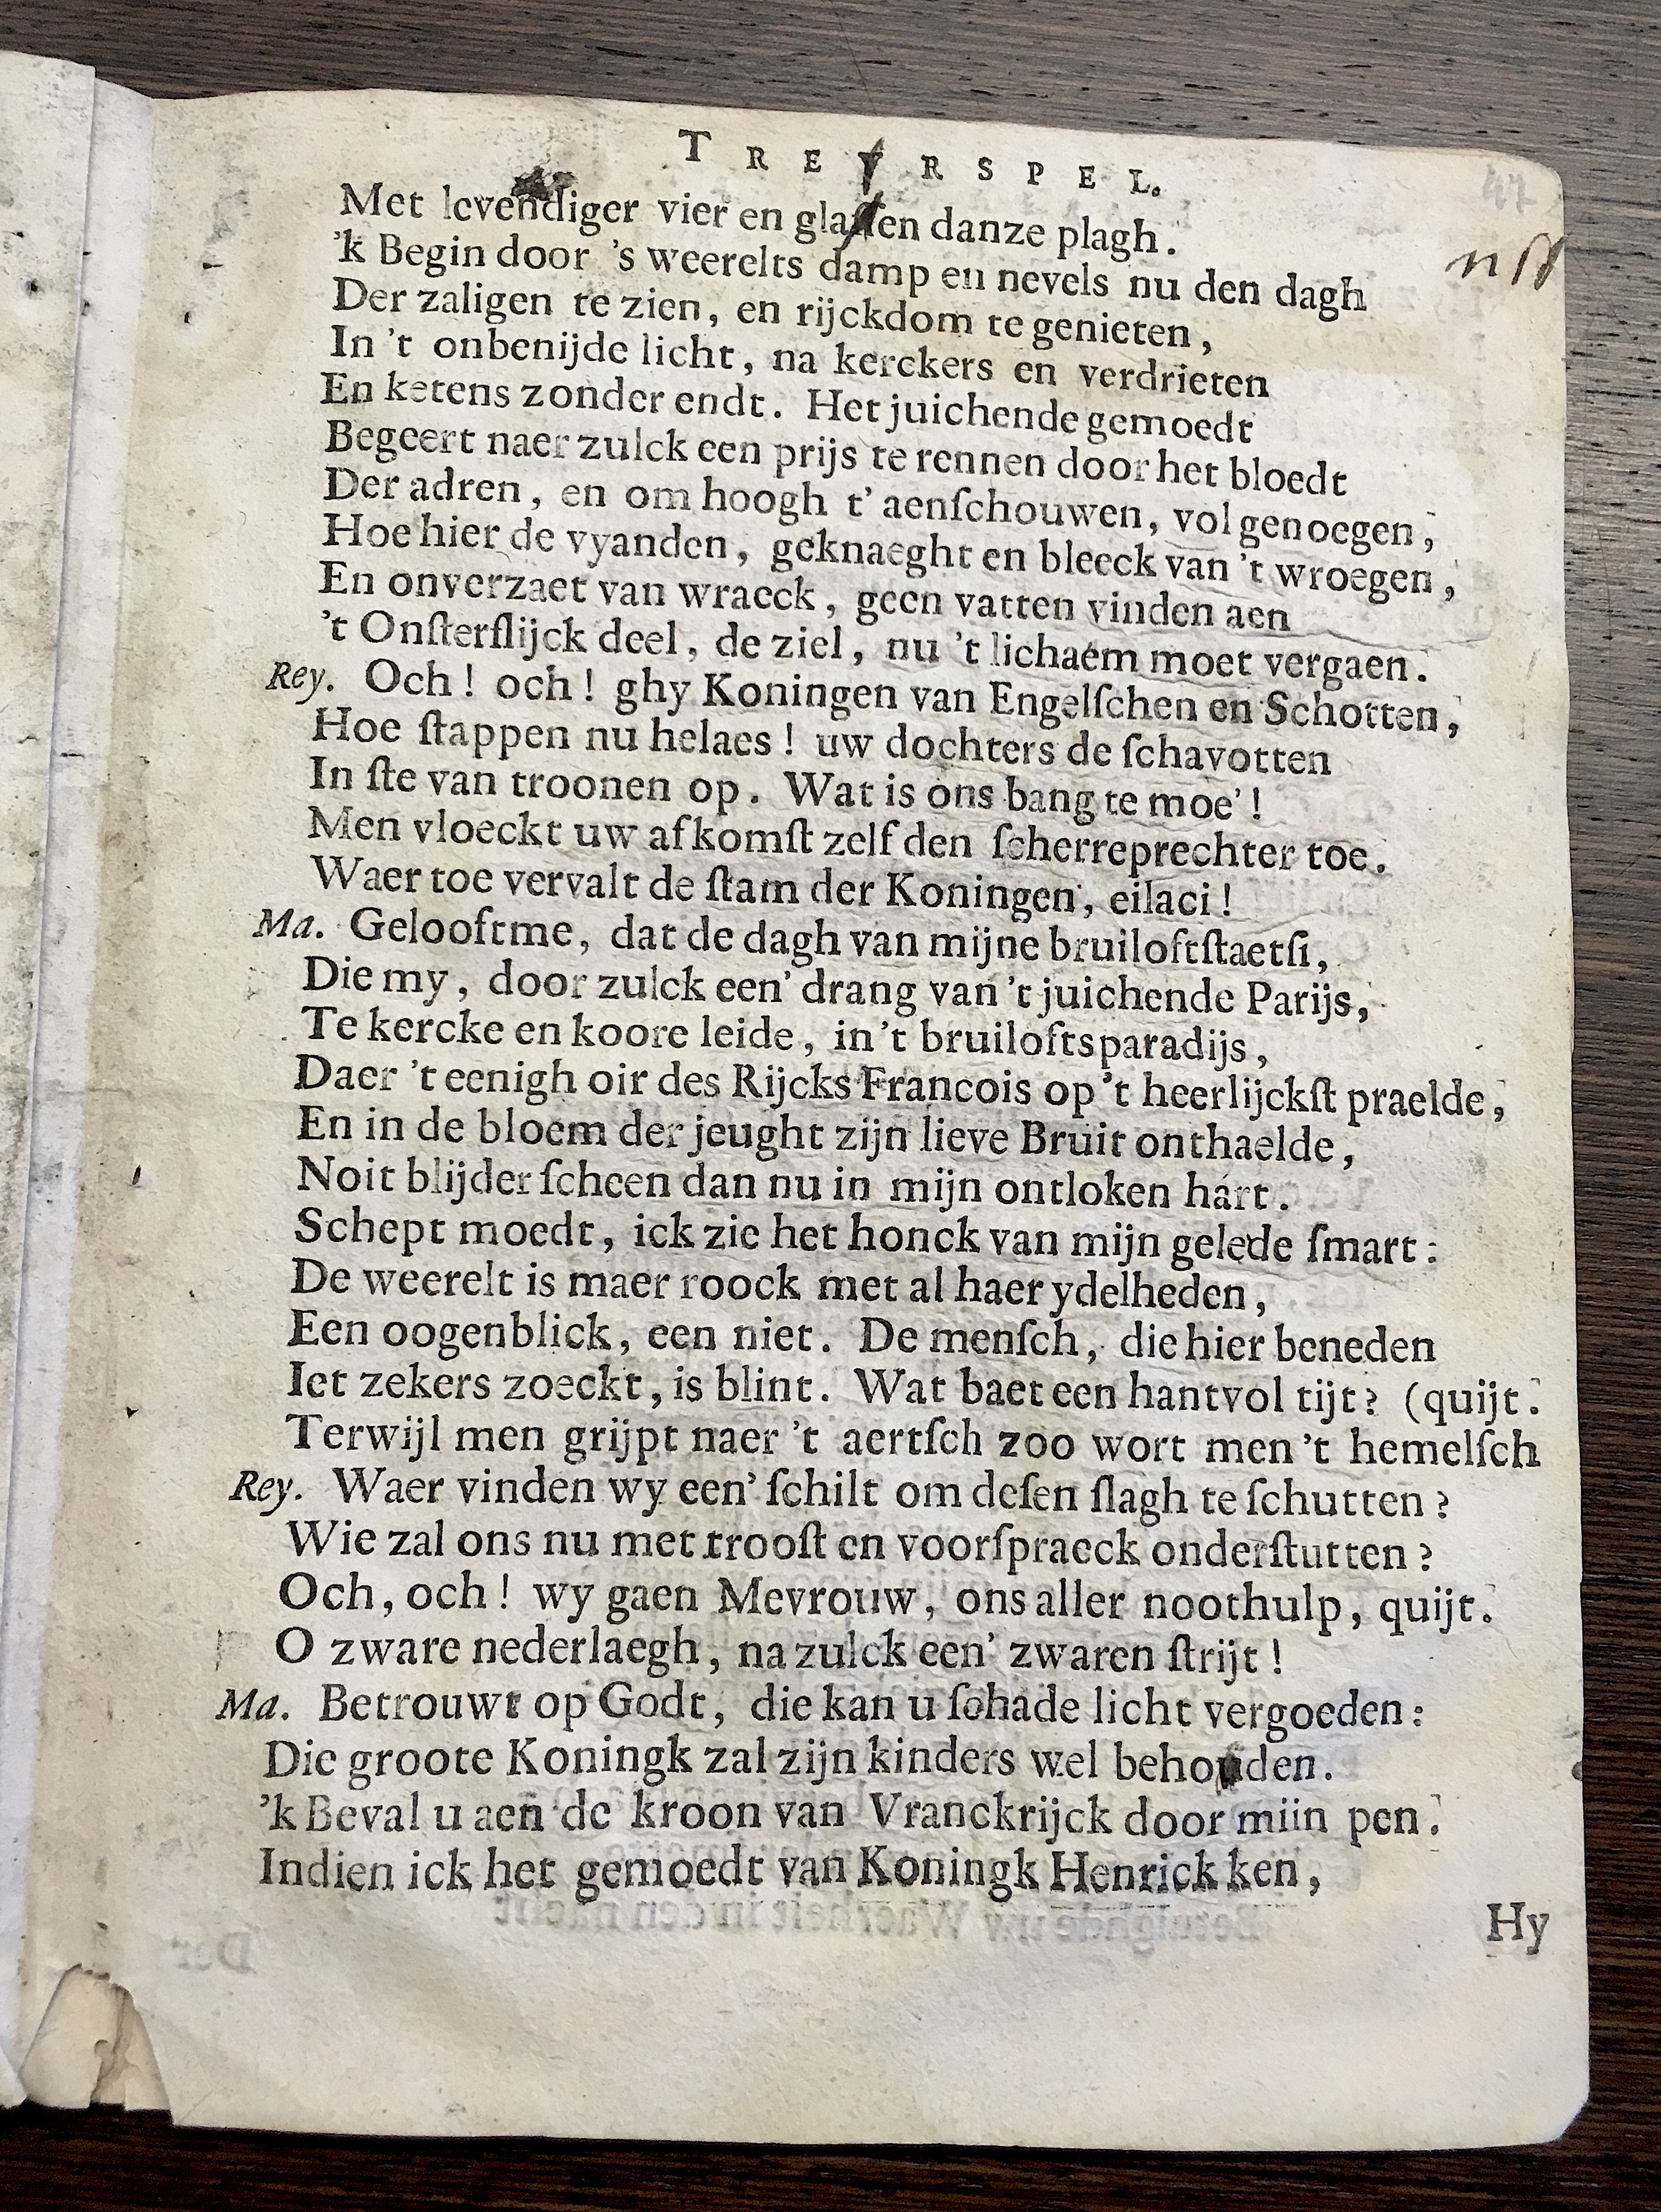 TREYRSPEL.
Met levendiger vier en glaſſen danze plagh.
'k Begin door 's weerelts damp en nevels nu den dagh
Der zaligen te zien, en rijckdom te genieten,
In 't onbenijde licht, na kerckers en verdrieten
En ketens zonder endt. Het juichende gemoedt
Begeert naer zulck een prijs te rennen door het bloedt
Der adren, en om hoogh t' aenſchouwen, vol genoegen,
Hoe hier de vyanden, geknaeght en bleeck van 't wroegen,
En onverzaet van wraeck, geen vatten vinden aen
't Onſterflijck deel, de ziel, nu 't lichaem moet vergaen.
Rey. Och! och! ghy Koningen van Engelſchen en Schotten,
Hoe ſtappen nu helaes! uw dochters de ſchavotten
In ſte van troonen op. Wat is ons bang te moe'!
Men vloeckt uw afkomſt zelf den ſcherreprechter toe.
Waer toe vervalt de ſtam der Koningen, eilaci!
Ma. Gelooftme, dat de dagh van mijne bruiloftſtaetſi,
Die my, door zulck een' drang van 't juichende Parijs,
Te kercke en koore leide, in 't bruiloftsparadijs,
Daer 't eenigh oir des Rijcks Francois op 't heerlijckſt praelde,
En in de bloem der jeught zijn lieve Bruit onthaelde,
Noit blijder ſcheen dan nu in mijn ontloken hart.
Schept moedt, ick zie het honck van mijn gelede ſmart:
De weerelt is maer roock met al haer ydelheden,
Een oogenblick, een niet. De menſch, die hier beneden
Iet zekers zoeckt, is blint. Wat baet een hantvol tijt? (quijt.
Terwijl men grijpt naer 't aertſch zoo wort men 't hemelſch
Rey. Waer vinden wy een' ſchilt om deſen ſlagh te ſchutten?
Wie zal ons nu met trooſt en voorſpraeck onderſtutten?
Och, och! wy gaen Mevrouw, ons aller noothulp, quijt.
O zware nederlaegh, na zulck een' zwaren ſtrijt!
Ma. Betrouwt op Godt, die kan u ſchade licht vergoeden:
Die groote Koningk zal zijn kinders wel behouden.
'k Beval u aen de kroon van Vranckrijck door miin pen.
Indien ick het gemoedt van Koningk Henrick ken,
Hy